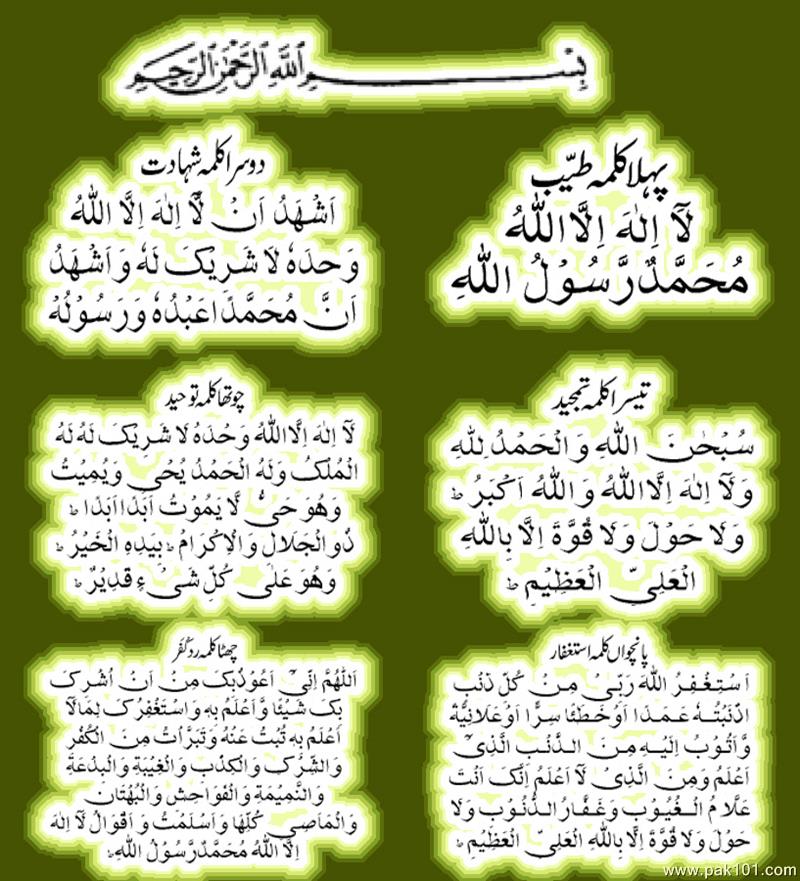 بِسْمِ اللهِ الرَّحْمٰنِ الرَّحِيْمِ
پہلا کلمہ طیّب
لَآ اِلٰهَ اِلَّا اللهُ
مُحَمَّدٌ رَّسُوْلُ اللهِ
دوسرا کلمہ شہادت
اَشْهَدُ اَنْ لَّآ اِلٰهَ اِلَّا اللهُ
وَحْدَهٗ لَا شَرِيْكَ لَهٗ وَاَشْهَدُ
اَنَّ مُحَمَّدًا عَبْدُهٗ وَرَسُوْلُهٗ
تیسرا کلمہ تمجید
سُبْحٰنَ اللهِ وَالْحَمْدُ لِلّٰهِ
وَلَآ اِلٰهَ اِلَّا اللهُ وَاللهُ اَكْبَرُ ؕ
وَلَا حَوْلَ وَلَا قُوَّةَ اِلَّا بِاللهِ
الْعَلِىِّ الْعَظِيْمِ ؕ
چوتھا کلمہ توحید
لَآ اِلٰهَ اِلَّا اللهُ وَحْدَهٗ لَا شَرِيْكَ لَهٗ لَهُ
الْمُلْكُ وَلَهُ الْحَمْدُ يُحْىٖ وَيُمِيْتُ
وَهُوَ حَىٌّ لَّا يَمُوْتُ اَبَدًا اَبَدًا ؕ
ذُو الْجَلَالِ وَالْاِكْرَامِ ؕ بِيَدِهِ الْخَيْرُ ؕ
وَهُوَ عَلٰى كُلِّ شَىْءٍ قَدِيْرٌ ؕ
پانچواں کلمہ استغفار
اَسْتَغْفِرُ اللهَ رَبِّىْ مِنْ كُلِّ ذَنْۢبٍ
اَذْنَبْتُهٗ عَمَدًا اَوْ خَطَئًا سِرًّا اَوْ عَلَانِيَةً
وَّاَتُوْبُ اِلَيْهِ مِنَ الذَّنْۢبِ الَّذِىْٓ
اَعْلَمُ وَمِنَ الَّذِىْ لَآ اَعْلَمُ اِنَّكَ اَنْتَ
عَلَّامُ الْغُيُوْبِ وَغَفَّارُ الذُّنُوْبِ وَلَا
حَوْلَ وَلَا قُوَّةَ اِلَّا بِاللهِ الْعَلِىِّ الْعَظِيْمِ ؕ
چھٹا کلمہ ردّ کفر
اَللّٰهُمَّ اِنِّىْٓ اَعُوْذُبِكَ مِنْ اَنْ اُشْرِكَ
بِكَ شَيْئًا وَّاَعْلَمُ بِهٖ وَاسْتَغْفِرُكَ بِمَالَآ
اَعْلَمُ بِهٖ تُبْتُ عَنْهُ وَتَبَرَّاْتُ مِنَ الْكُفْرِ
وَالشِّرْكِ وَالْكِذْبِ وَالْغِيْبَةِ وَالْبِدْعَةِ
وَالنَّمِيْمَةِ وَالْفَوَاحِشِ وَالْبُهْتَانِ
وَالْمَعَاصِىْ كُلِّهَا وَاَسْلَمْتُ وَاَقُوْلُ لَآ اِلٰهَ
اِلَّا اللهُ مُحَمَّدٌ رَّسُوْلُ اللهِ ؕ
www.pak101.com